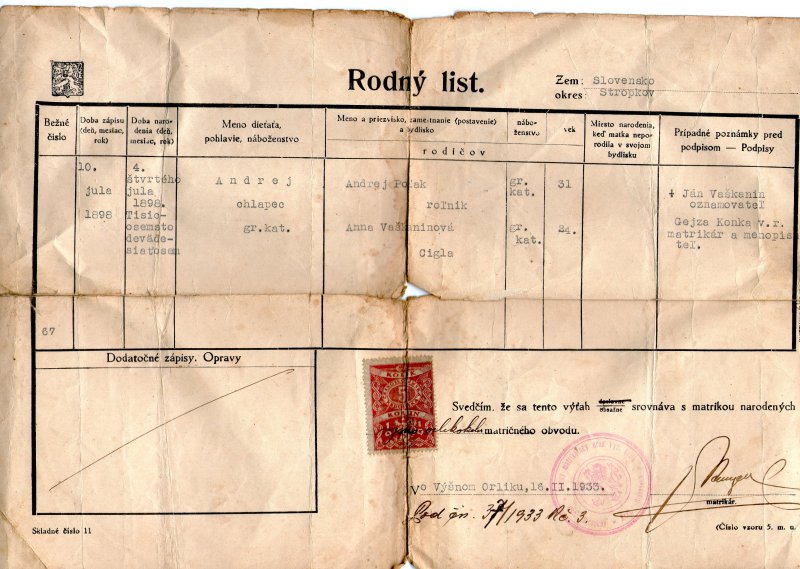 Rodný list.
Zem: Slovensko
okres: Stropkov
Bežné číslo
Doba zápisu (deň, mesiac, rok)
Doba narodenia (deň, mesiac, rok)
Meno dieťaťa, pohlavie, náboženstvo
Meno a priezvisko, zamestnanie (postavenie) a bydlisko
rodičov
náboženstvo
vek
Miesto narodenia, keď matka neporodila v svojom bydlisku
Prípadné poznámky pred podpisom — Podpisy
10.
jula
1898
4.
štvrtého
jula
1898.
Tisíc-
osemsto
deväde-
siatosem
Andrej
chlapec
gr.kat.
Andrej Poľak
roľník
Anna Vaškaninová
Cigla
gr.
kat.
gr.
kat.
31
24.
Ján Vaškanin
oznamovateľ
Gejza Konka v.r.
matrikár a menopisa
teľ.
67
Dodatočné zápisy. Opravy
5
KORUN
Svedčím, že sa tento výťah doslovne obsažne srovnáva s matrikou narodených
matričného obvodu.
Vo Vyšnom Orlíku, 16.II.1933.
matrikár.
Pod čís. 37/1933 Kč. 3.
Skladné číslo 11
(Číslo vzoru 5. m. u.